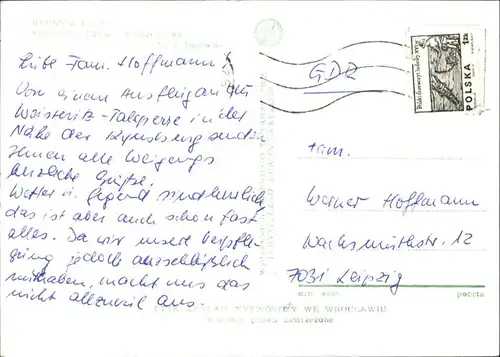 Liebe Fam. Hoffmann!
Von einem Ausflug an die
Weistritz-Talsperre in der
Nähe der Kynsburg senden
Ihnen alle Weigangs
herzliche Grüße.
Wetter u. Gegend sind herrlich
das ist aber auch schon fast
alles. Da wir unsere Verpfle-
gung jedoch ausschließlich
mithaben, macht uns das
nicht allzuviel aus.
GDR
POLSKA
1 ZŁ
Fam.
Werner Hoffmann
Wachsmuthstr. 12
7031 Leipzig
poczta
WE WROCŁAWIU